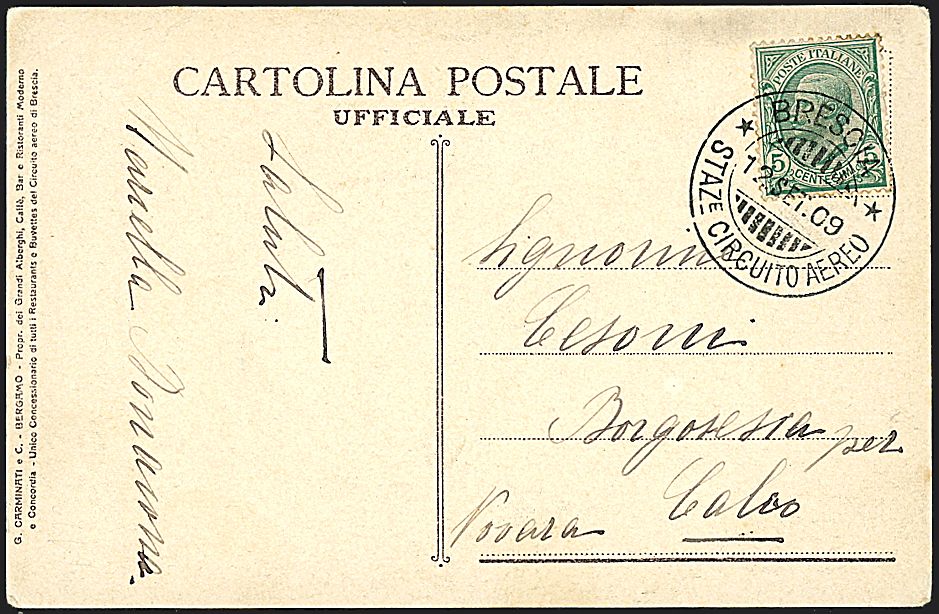 CARTOLINA POSTALE
UFFICIALE
POSTE ITALIANE
5 CENTESIMI 5
BRESCIA
12.SET.09
STAZE CIRCUITO AEREO
G. CARMINATI e C. - BERGAMO - Propr. dei Grandi Alberghi, Caffè, Bar e Ristoranti Moderno
e Concordia - Unico Concessionario di tutti i Restaurants e Buvettes del Circuito aereo di Brescia.
Saluti
Signorina
Cesoni
Borgosesia per
Novara Calco